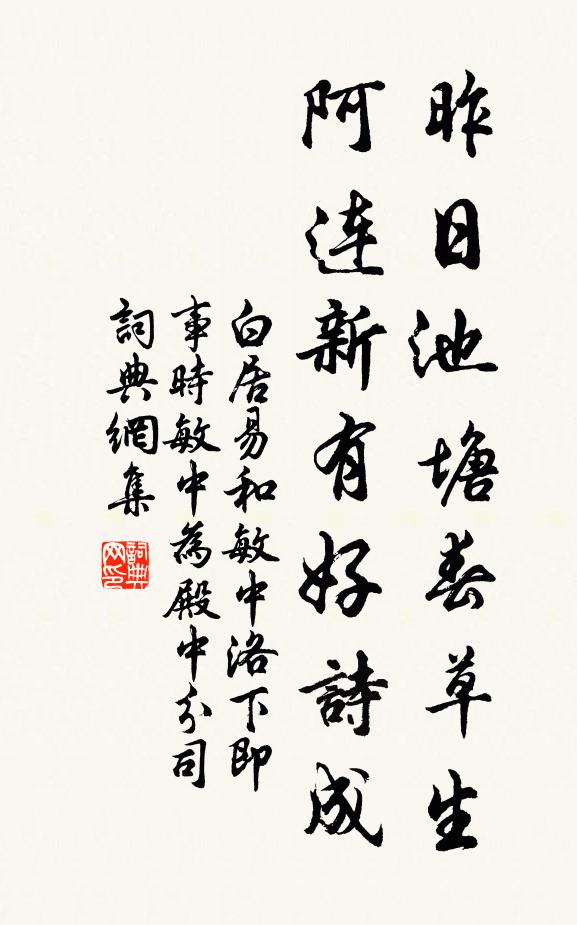 昨日池塘春草生
阿連新有好詩成
白居易和敏中洛下即
事時敏中為殿中分司
詞典網集
詞典
网印